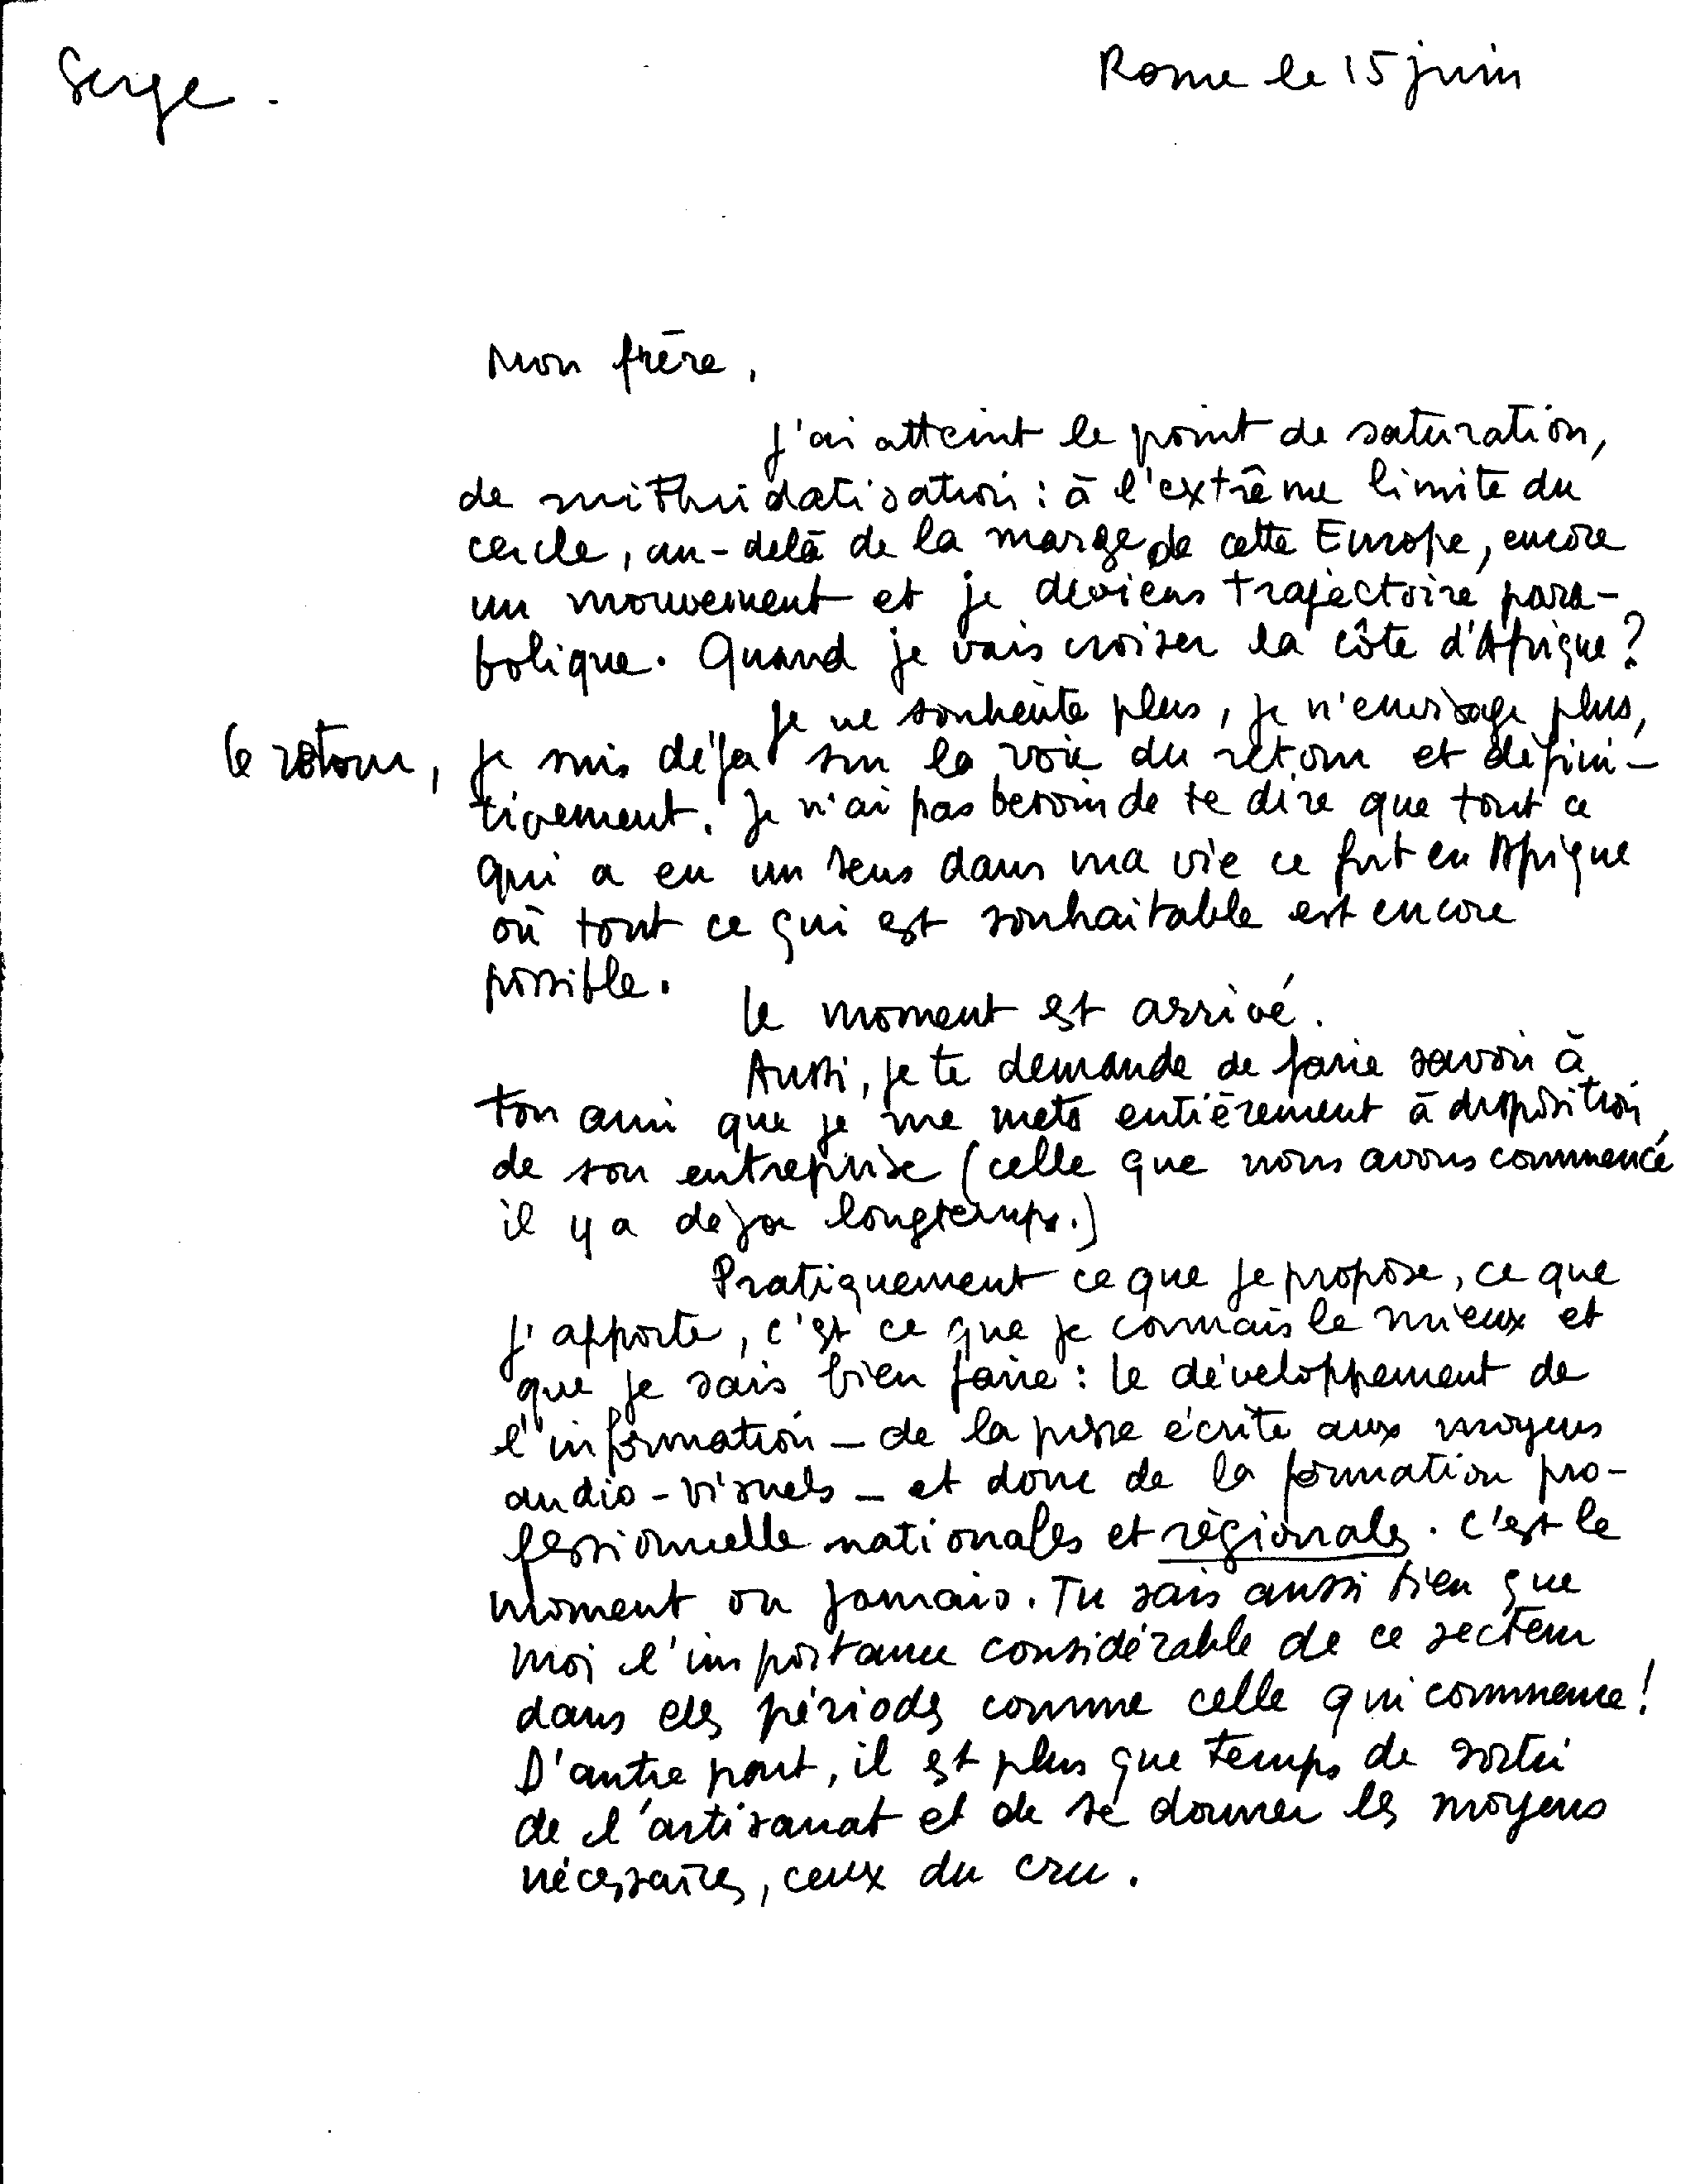 Serge.
Rome le 15 juin
Mon frère,
J'ai atteint le point de saturation,
de mithridatisation : à l'extrême limite du
cercle, au-delà de la marge de cette Europe, encore
un mouvement et je deviens trajectoire para-
bolique. Quand je vais croiser la côte d'Afrique?
Je ne souhaite plus, je n'envisage plus,
le retour, je suis déjà sur la voie du retour et défini-
tivement. Je n'ai pas besoin de te dire que tout ce
qui a eu un sens dans ma vie ce fut en Afrique
où tout ce qui est souhaitable est encore
possible.
Le moment est arrivé.
Aussi, je te demande de faire savoir à
ton ami que je me mets entièrement à disposition
de son entreprise (celle que nous avons commencé
il y a déjà longtemps.)
Pratiquement ce que je propose, ce que
j'apporte, c'est ce que je connais le mieux et
que je sais bien faire : le développement de
l'information – de la presse écrite aux moyens
audio-visuels – et donc de la formation pro-
fessionnelle nationales et régionales. C'est le
moment ou jamais. Tu sais aussi bien que
moi l'importance considérable de ce secteur
dans des périodes comme celle qui commence!
D'autre part, il est plus que temps de sortir
de l'artisanat et de se donner les moyens
nécessaires, ceux du cru.